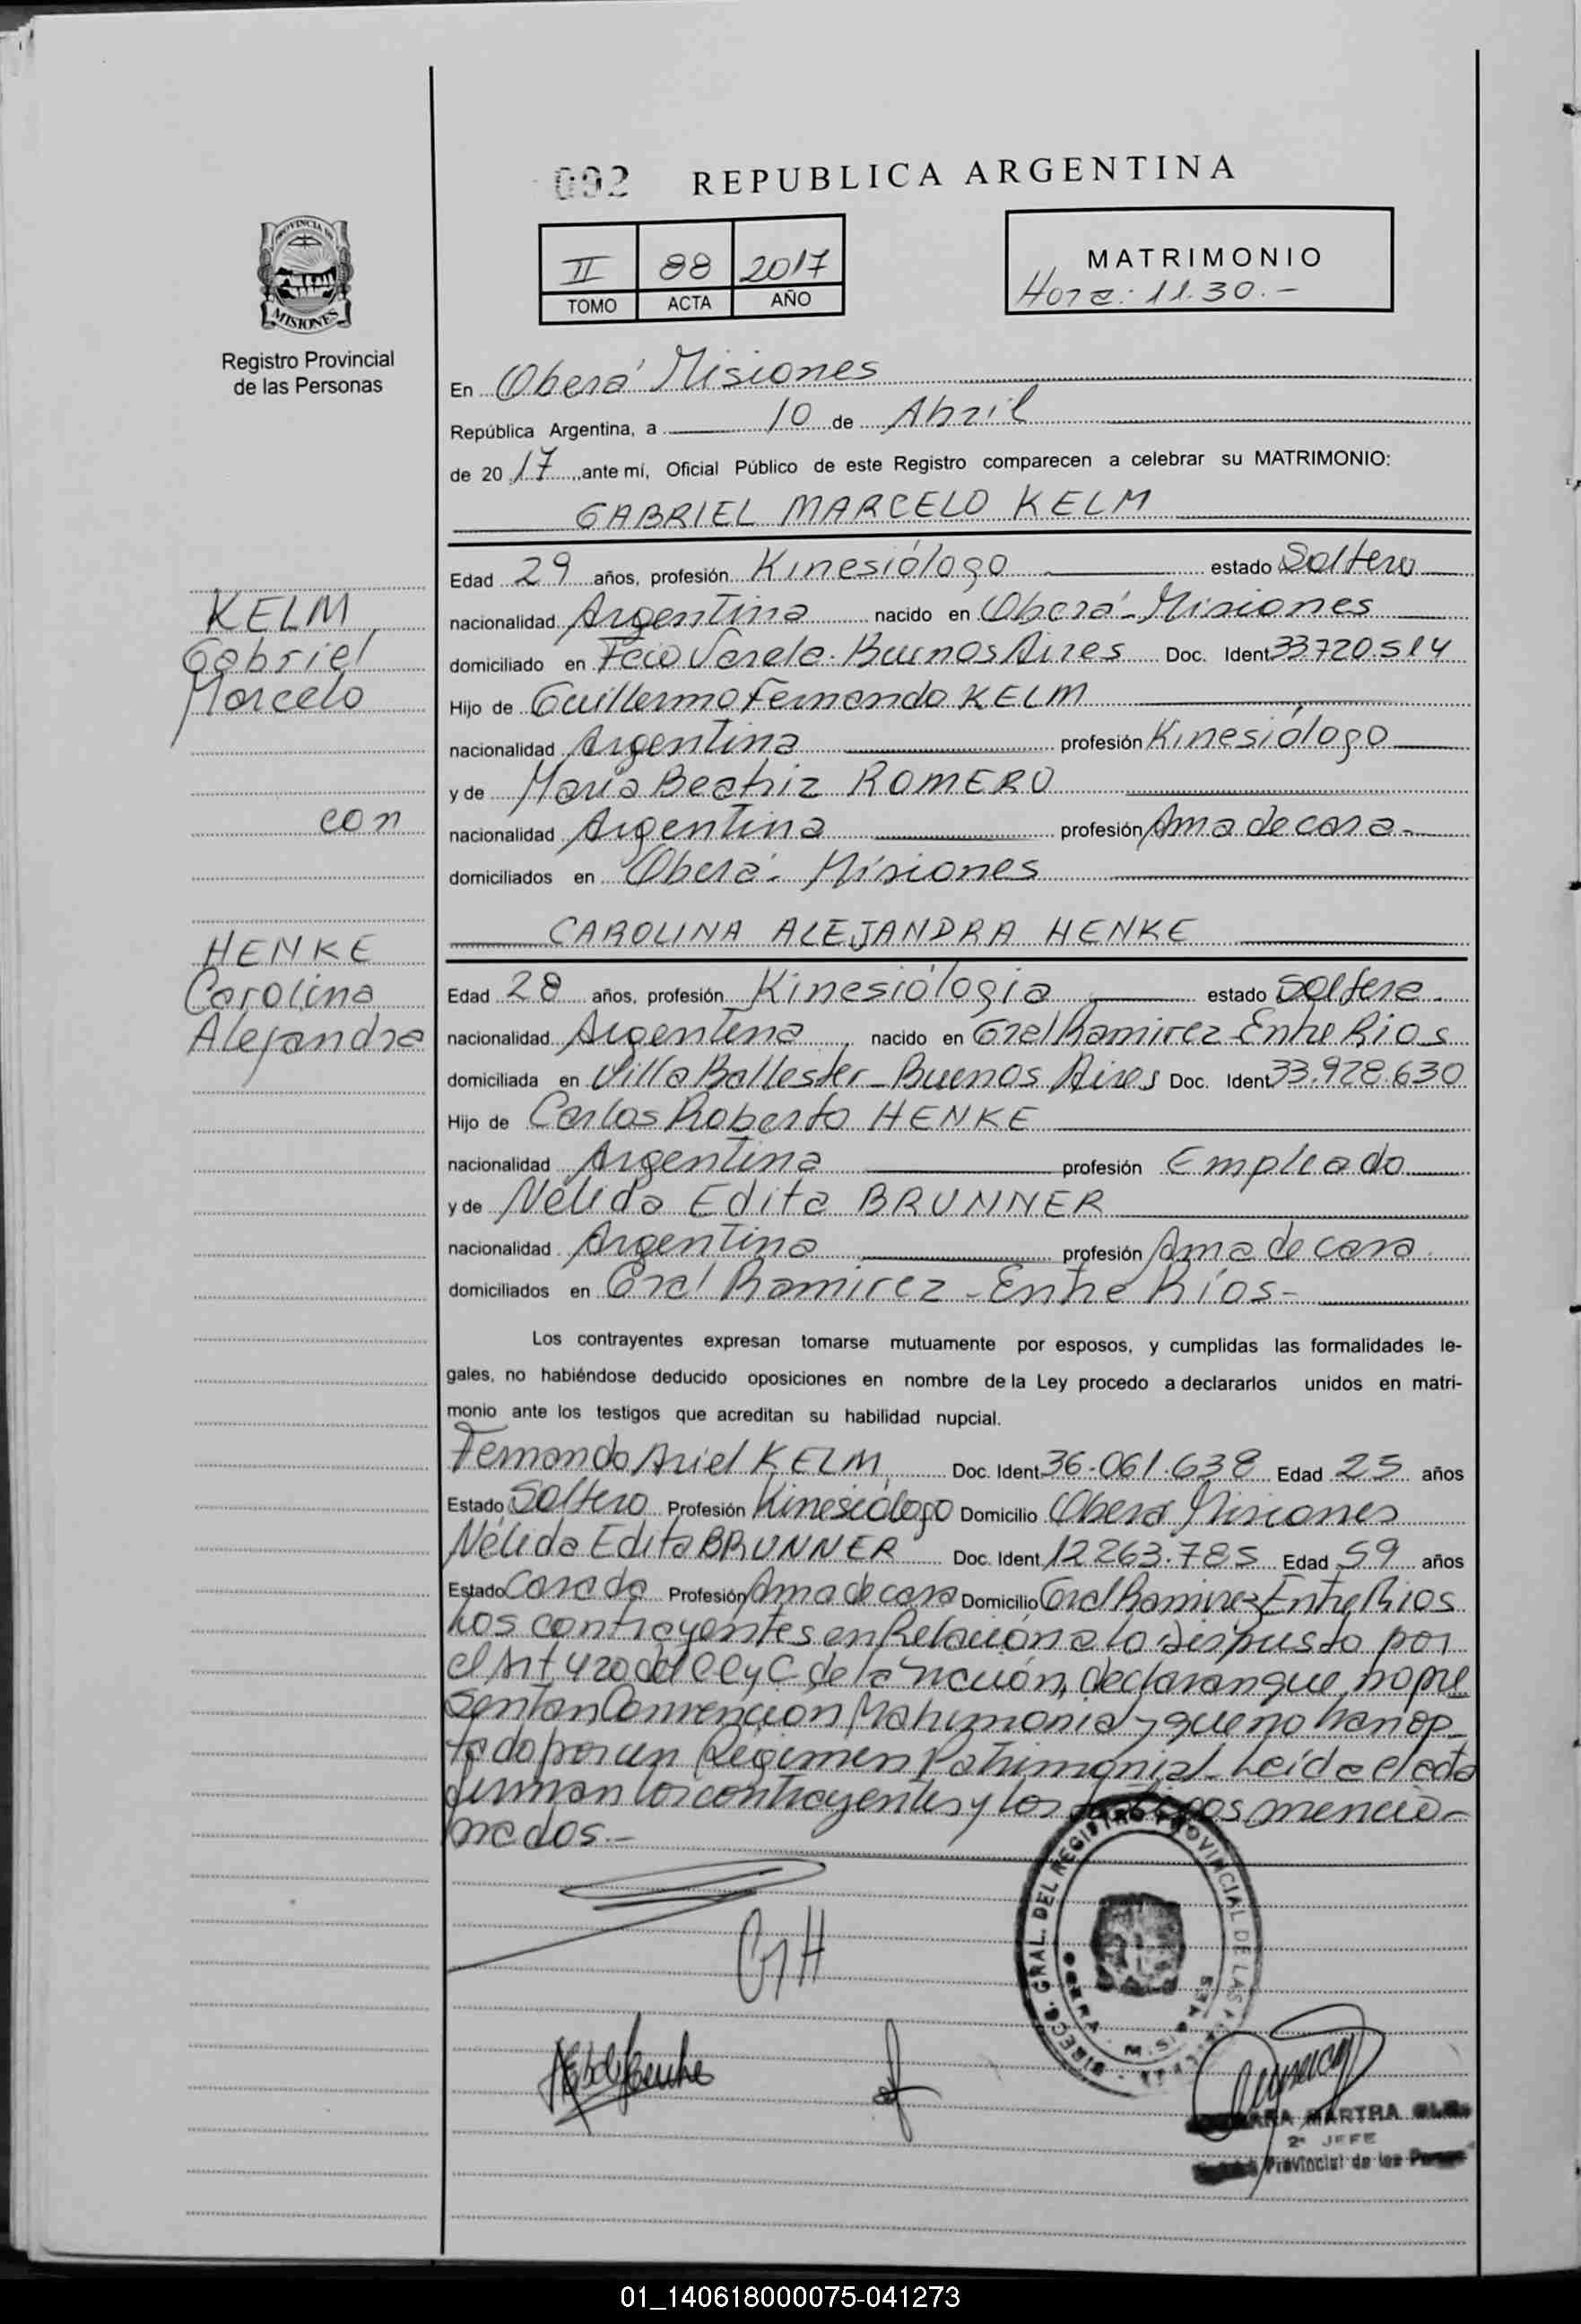 092 REPUBLICA ARGENTINA
PROVINCIA DE
MISIONES
Registro Provincial
de las Personas
II 88 2017
TOMO ACTA AÑO
MATRIMONIO
Hora: 11.30.-
En Oberá Misiones
República Argentina, a 10 de Abril
de 20 17 ante mí, Oficial Público de este Registro comparecen a celebrar su MATRIMONIO:
GABRIEL MARCELO KELM
KELM
Gabriel
Marcelo
con
HENKE
Carolina
Alejandra
Edad 29 años, profesión Kinesiólogo estado Soltero
nacionalidad Argentina nacido en Oberá - Misiones
domiciliado en Fcio Varela - Buenos Aires Doc. Ident 33720.514
Hijo de Guillermo Fernando KELM
nacionalidad Argentina profesión Kinesiólogo
y de María Beatriz ROMERO
nacionalidad Argentina profesión Ama de casa-
domiciliados en Oberá - Misiones
CAROLINA ALEJANDRA HENKE
Edad 28 años, profesión Kinesióloga estado Soltera.
nacionalidad Argentina, nacido en Gral Ramirez - Entre Rios
domiciliada en Villa Ballester - Buenos Aires Doc. Ident 33.928.630
Hijo de Carlos Roberto HENKE
nacionalidad Argentina profesión Empleado
y de Nélida Edita BRUNNER
nacionalidad Argentina profesión Ama de casa
domiciliados en Gral Ramirez - Entre Ríos-
Los contrayentes expresan tomarse mutuamente por esposos, y cumplidas las formalidades le-
gales, no habiéndose deducido oposiciones en nombre de la Ley procedo a declararlos unidos en matri-
monio ante los testigos que acreditan su habilidad nupcial.
Fernando Ariel KELM, Doc. Ident 36.061.638 Edad 25 años
Estado Soltero Profesión Kinesiólogo Domicilio Oberá Misiones
Nélida Edita BRUNNER Doc. Ident 12263.785 Edad 59 años
Estado Casada Profesión Ama de casa Domicilio Gral Ramirez Entre Rios
Los contrayentes en Relación a lo dispuesto por
el Art 420 del CCyC de la nación, declaran que no pre
sentan Convención Matrimonial y que no han op-
tado por un Régimen Patrimonial - Leída el acta
firman los contrayentes y los testigos mencio-
nados.-
CAH
DIRECC. GRAL. DEL REGISTRO PROVINCIAL DE LAS
OBERA - MISIONES
MARTHA
2ª JEFE
Provincial de las
01_140618000075-041273